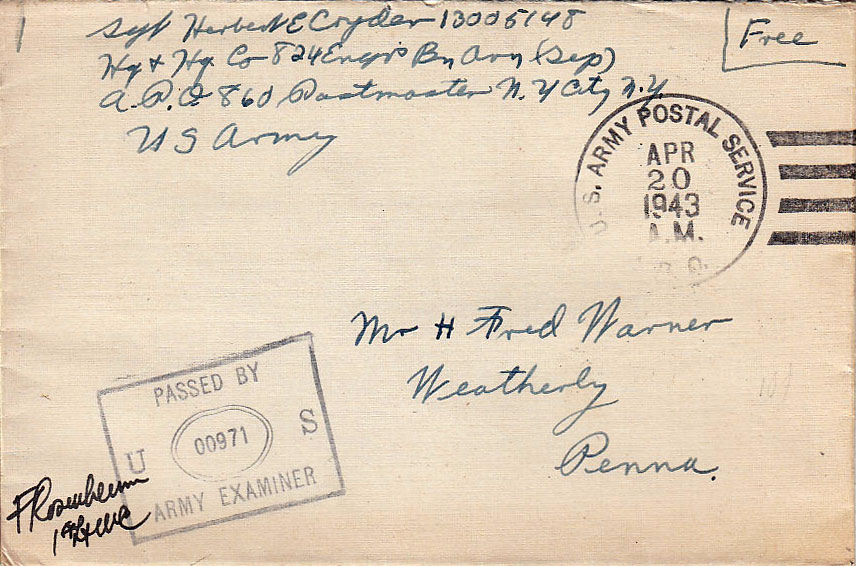 Sgt Herbert E Cryder 13005148
Hq & Hq Co 824 Engrs Bn Avn (Sep)
A.P.O 860 Postmaster N.Y City N.Y.
US Army
Free
U.S. ARMY POSTAL SERVICE
APR
20
1943
A.M.
Mr H Fred Warner
Weatherly
Penna.
PASSED BY
U 00971 S
ARMY EXAMINER